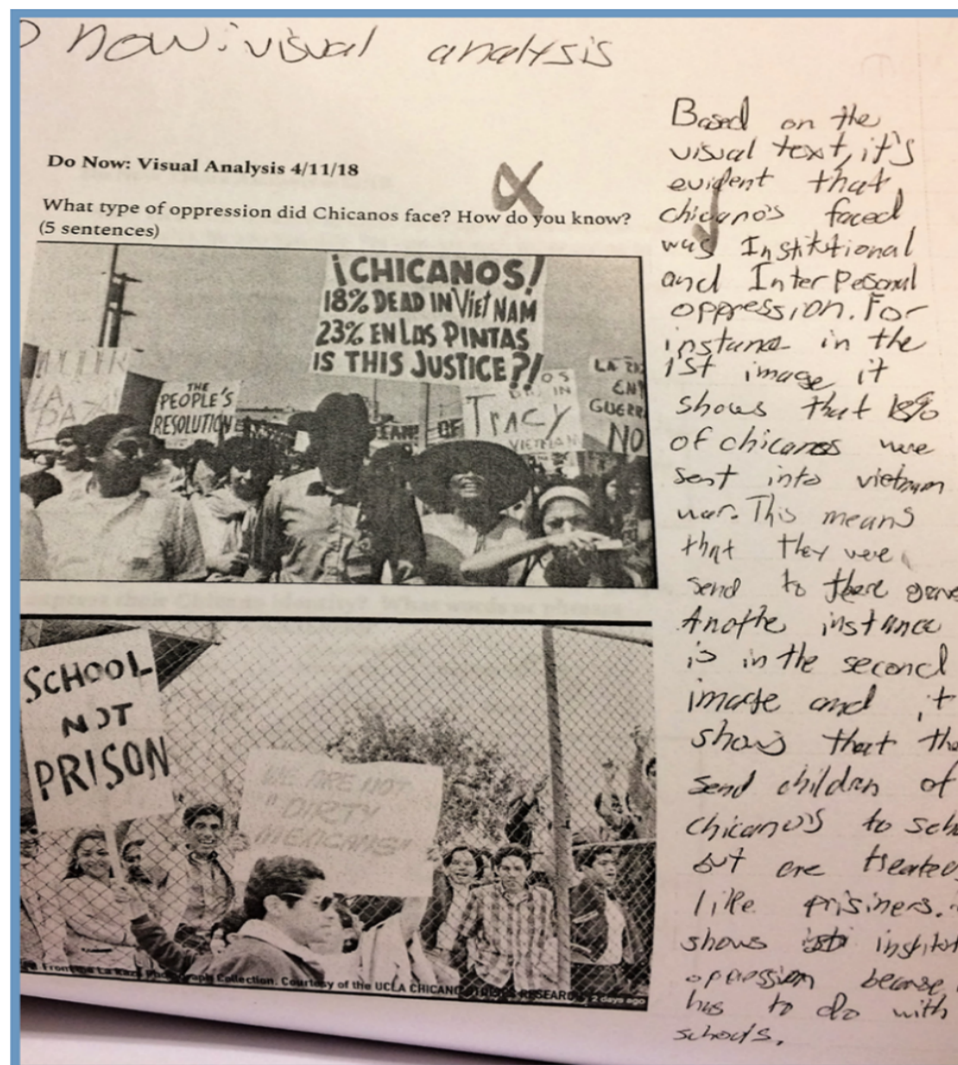 now: visual analysis
Do Now: Visual Analysis 4/11/18
What type of oppression did Chicanos face? How do you know?
(5 sentences)
¡CHICANOS!
18% DEAD IN VIET NAM
23% EN LAS PINTAS
IS THIS JUSTICE?!
LA
THE
PEOPLE'S
RESOLUTION
OF
TRACY
VIETNAM
EN
GUERR
NO
SCHOOL
NOT
PRISON
WE ARE NOT
"DIRTY
MEXICANS"
Collection. Courtesy of the UCLA CHICANO STUDIES RESEARC
2 days ago
Based on the
visual text, it's
evident that
chicano's faced
was Institutional
and InterPesonal
oppression. For
instance in the
1st image it
shows that 18%
of chicanos we
sent into vietnam
war. This means
that they were
send to there grave
Anothe instance
is in the second
image and it
shows that the
send children of
chicano's to sch
but are treated
like prisiners.
shows institut
oppression because
has to do with
schools.